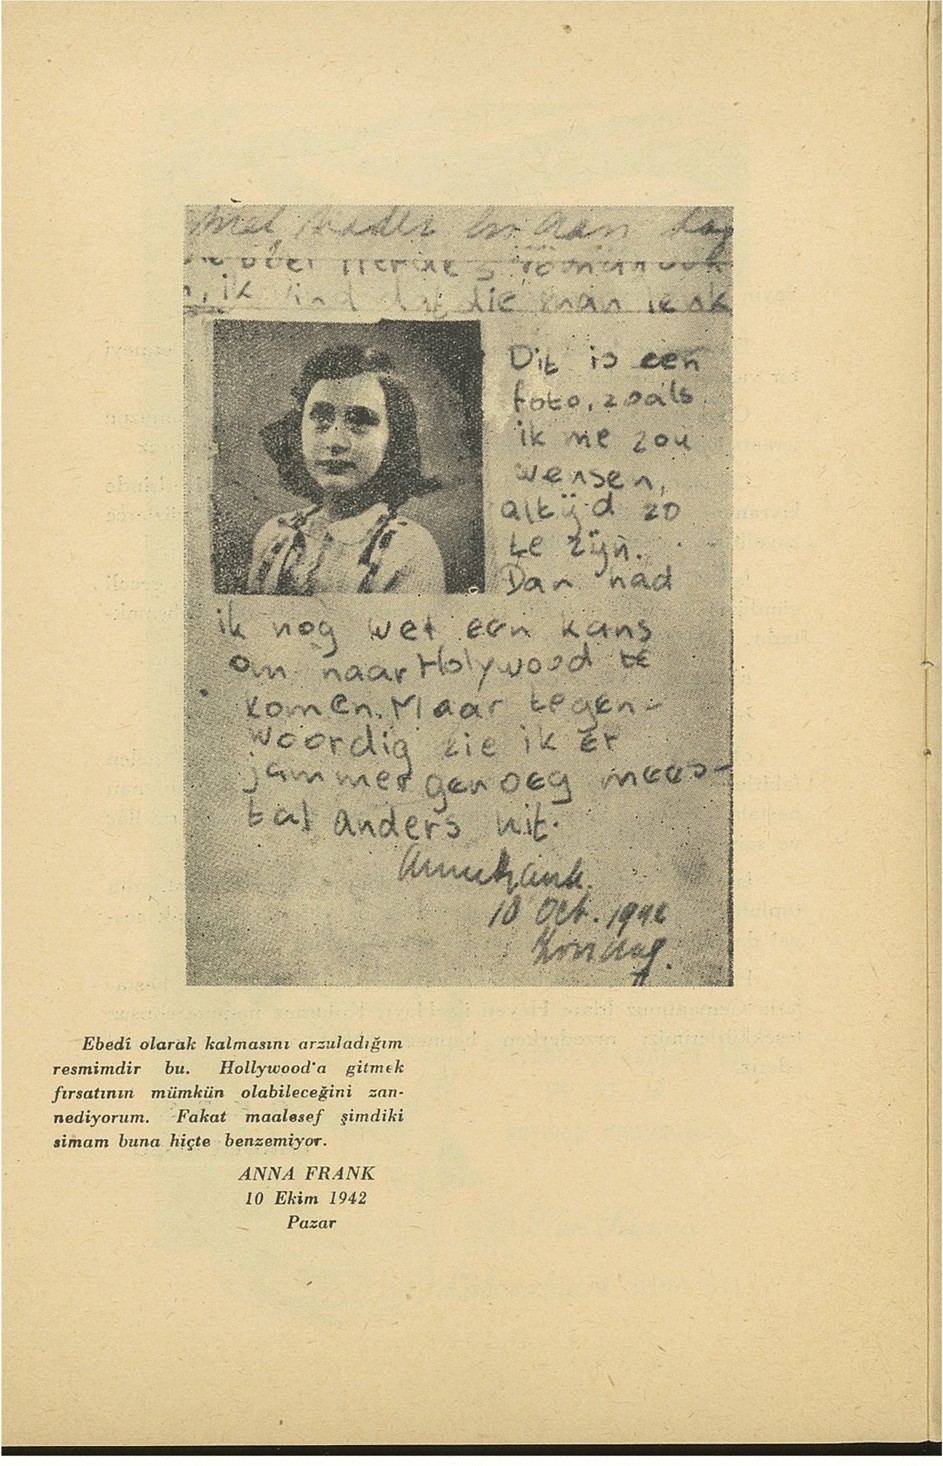 met vader en aan
ik vind dat die man
Dit is een
foto, zoals
ik me zou
wensen,
altijd zo
te zijn.
Dan had
ik nog wel een kans
om naar Holywood te
komen. Maar tegen-
woordig zie ik er
jammer genoeg mees-
tal anders uit.
Anne Frank.
10 Oct. 1942
Zondag.
Ebedî olarak kalmasını arzuladığım
resmimdir bu. Hollywood'a gitmek
fırsatının mümkün olabileceğini zan-
nediyorum. Fakat maalesef şimdiki
simam buna hiçte benzemiyor.
ANNA FRANK
10 Ekim 1942
Pazar